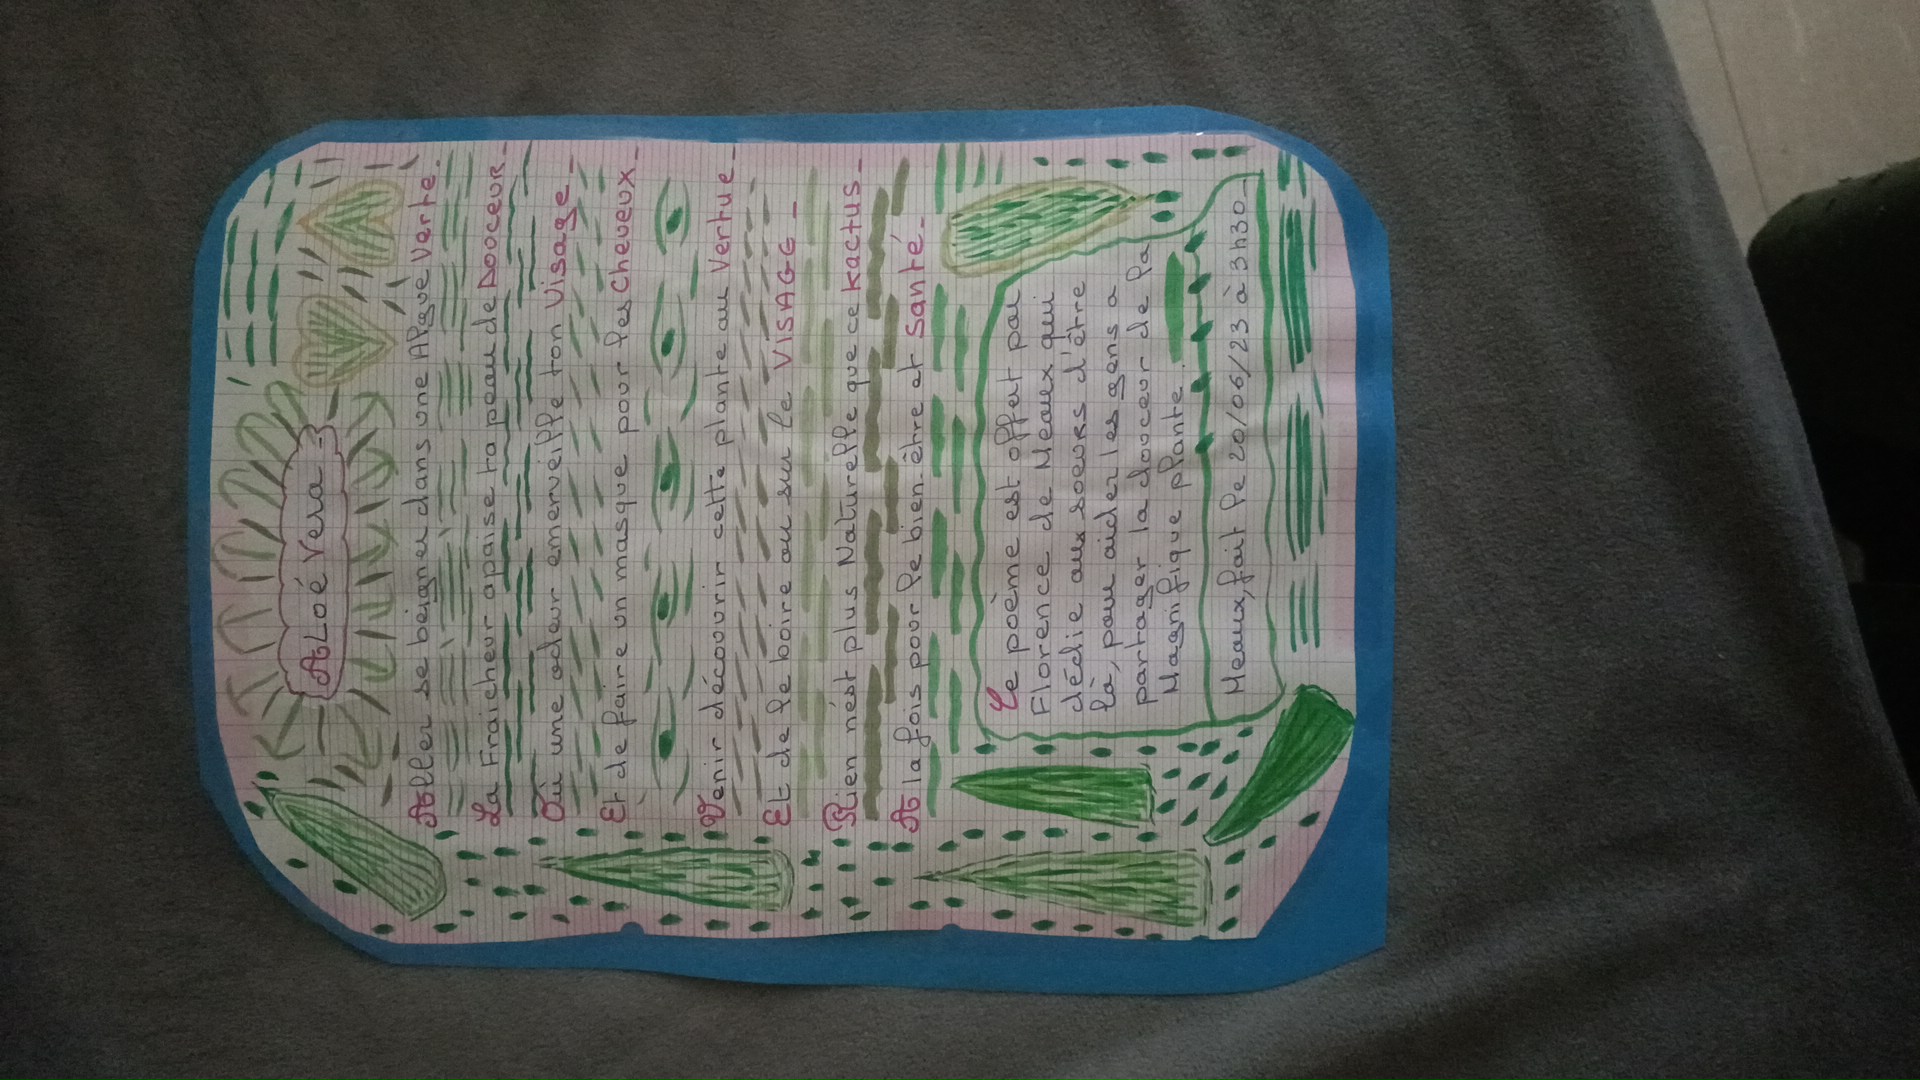 Aloé Vera
Aller se beigner dans une Algue Verte.
La Fraicheur apaise ta peau de Dooceur.
Où une odeur emerveille ton Visage.
Et de faire un masque pour les Cheveux.
Venir découvrir cette plante au Vertue.
Et de le boire ou sur le VISAGE.
Rien nést plus Naturelle que ce Kactus.
A la fois pour le bien-être et Santé.
Le poème est offert par
Florence de Meaux qui
dédie aux soeurs d'être
là, pour aider les gens a
partager la douceur de la
Magnifique plante.
Meaux, fait le 20/06/23 à 3h30.